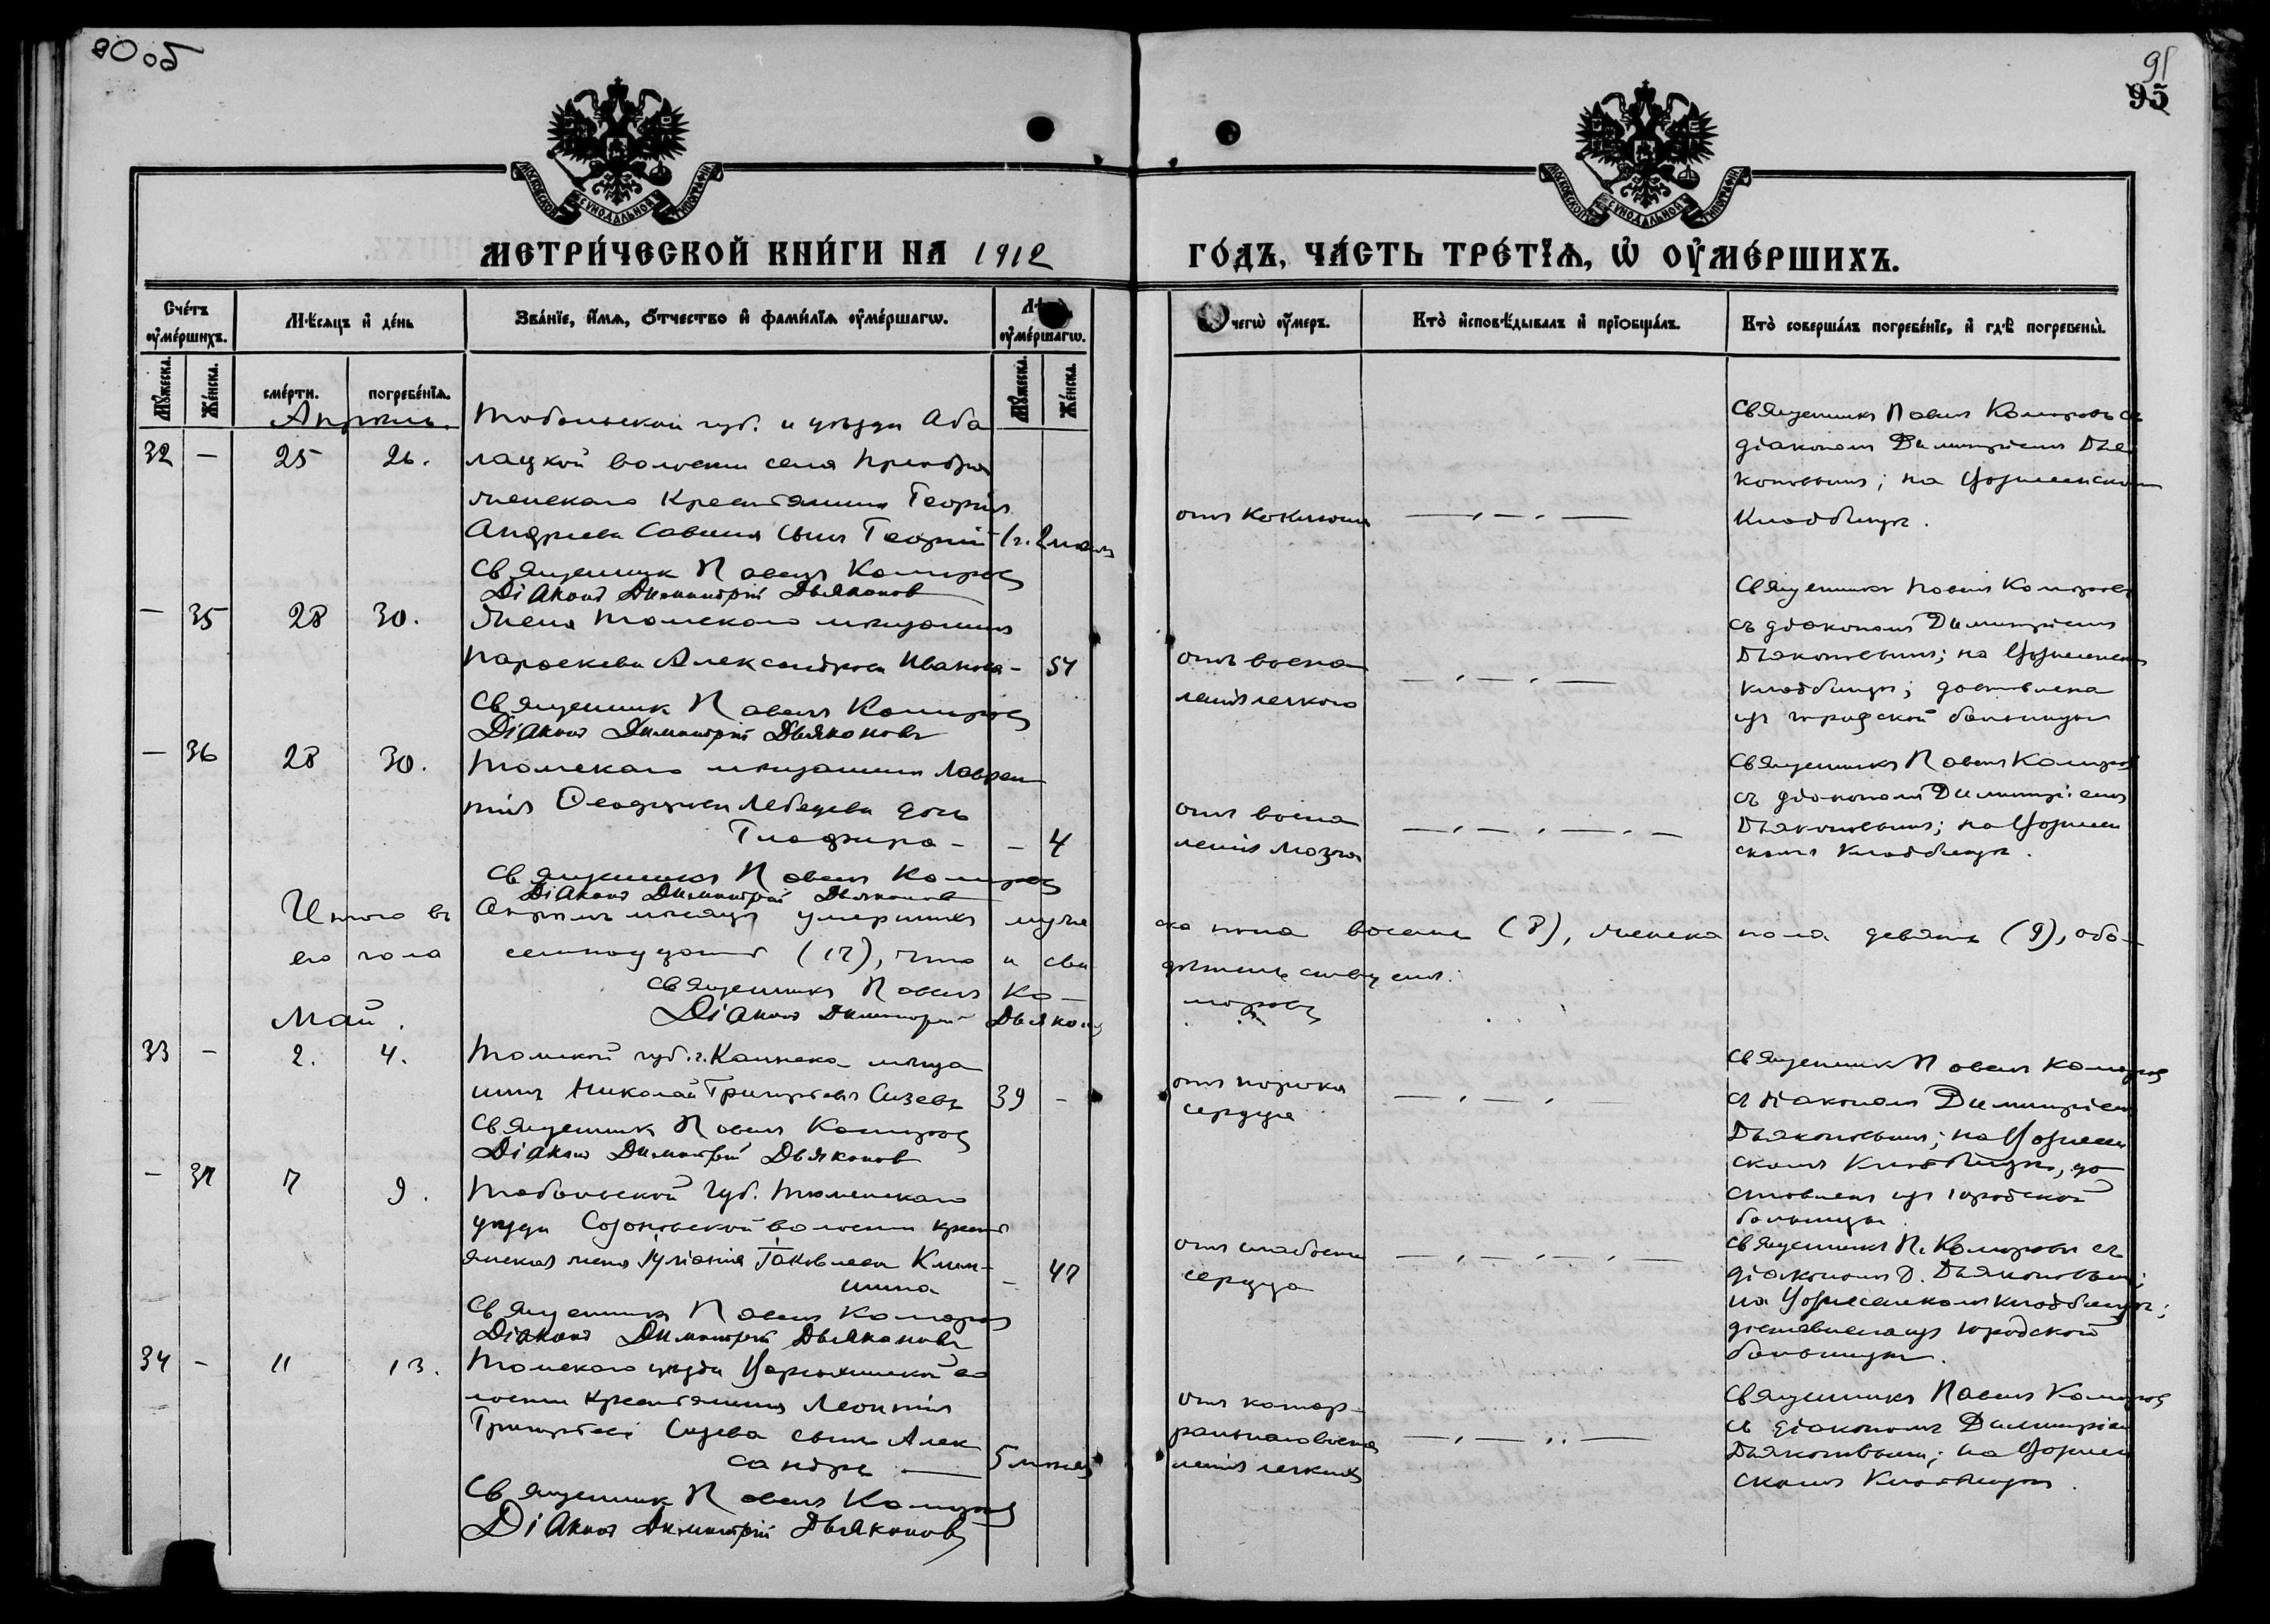 90об
91
95
МОСКОВСКОЙ СѴНОДАЛЬНОЙ ТИПОГРАФІИ
МОСКОВСКОЙ СѴНОДАЛЬНОЙ ТИПОГРАФІИ
МЕТРИ́ЧЕСКОЙ КНИ́ГИ НА 1912
ГО́ДЪ, ЧА́СТЬ ТРЕ́ТІѦ, Ѡ҆ ОУ҆МЕ́РШИХЪ.
Сче́тъ оу҆ме́ршихъ.
Мѣ́сяцъ и҆ де́нь
Зва́нїе, и҆́мѧ, о҆́тчество и҆ фами́лїѧ оу҆ме́ршагѡ.
оу҆ме́ршагѡ.
Ѿ чегѡ̀ оу҆́меръ.
Кто̀ и҆сповѣ́дывалъ и҆ прїобща́лъ.
Кто̀ соверша́лъ погребе́нїе, и҆ гдѣ̀ погребены̀.
Му́жеска.
Же́нска.
сме́рти.
погребе́нїѧ.
Му́жеска.
Же́нска.
Апрѣль.
Тобольской губ. и уѣзда Аба
32 — 25 26. лацкой волости села Преобра
женскаго крестьянина Георгія
Андреева Савина сынъ Георгій 1 г. 2 мѣс.
Священникъ Павелъ Комаровъ
Діаконъ Димитрій Дьяконов
отъ коклюша
Священникъ Павелъ Комаровъ съ
діакономъ Димитріемъ Дья
коновымъ; на Вознесенскомъ
кладбищѣ.
— 35 28 30. Жена томскаго мѣщанина
Параскева Александрова Иванова — 54
Священник Павелъ Комаровъ
Діаконъ Димитрій Дьяконовъ
отъ воспа
ленія легкаго
Священникъ Павелъ Комаровъ
съ діакономъ Димитріемъ
Дьяконовымъ; на Вознесенском
кладбищѣ; доставлена
изъ городской больницы
— 36 28 30. Томскаго мѣщанина Лаврен
тія Ѳеодорова Лебедева дочь
Глафира — — 4
Священникъ Павелъ Комаровъ
Діаконъ Димитрій Дьяконов
отъ воспа
ленія мозга
Священникъ Павелъ Комаров
съ діакономъ Димитріемъ
Дьяконовымъ; на Вознесен
скомъ кладбищѣ.
Итого въ Апрѣлѣ мѣсяцѣ умершихъ муже
ска пола восемь (8), женска пола девять (9), обо-
его пола семнадцать (17), что и сви
дѣтельствуемъ:
Священникъ Павелъ Ко-
маровъ
Діаконъ Димитрій Дьяконов
Май.
33 — 2. 4. Томской губ. г. Каинска мѣща
нинъ Николай Григорьевъ Сизевъ 39 —
Священник Павелъ Комаровъ
Діаконъ Димитрій Дьяконов
отъ порока
сердца
Священник Павелъ Комаров
съ діакономъ Димитріемъ
Дьяконовымъ; на Вознесен
скомъ кладбищѣ, до
ставленъ изъ городской
больницы.
— 37 7 9. Тобольской губ. Тюменскаго
уѣзда Созоновской волости крест
янская жена Іуліанія Іаковлева Клим-
шина — 47
Священникъ Павелъ Комаров
Діаконъ Димитрій Дьяконовъ
отъ слабости
сердца
Священникъ П. Комаровъ съ
діакономъ Д. Дьяконовым;
на Вознесенскомъ кладбищѣ;
доставлена изъ городской
больницы.
34 — 11 13. Томскаго уѣзда Варюхинской во
лости крестьянина Леонтія
Григорьева Сизева сынъ Алек
сандръ — 5 мѣсяц
Священник Павелъ Комаров
Діаконъ Димитрій Дьяконовъ
отъ катар-
ральнаго воспа
ленія легкихъ
Священникъ Павелъ Комаров
съ діакономъ Димитріем
Дьяконовым; на Вознесен
скомъ кладбищѣ.